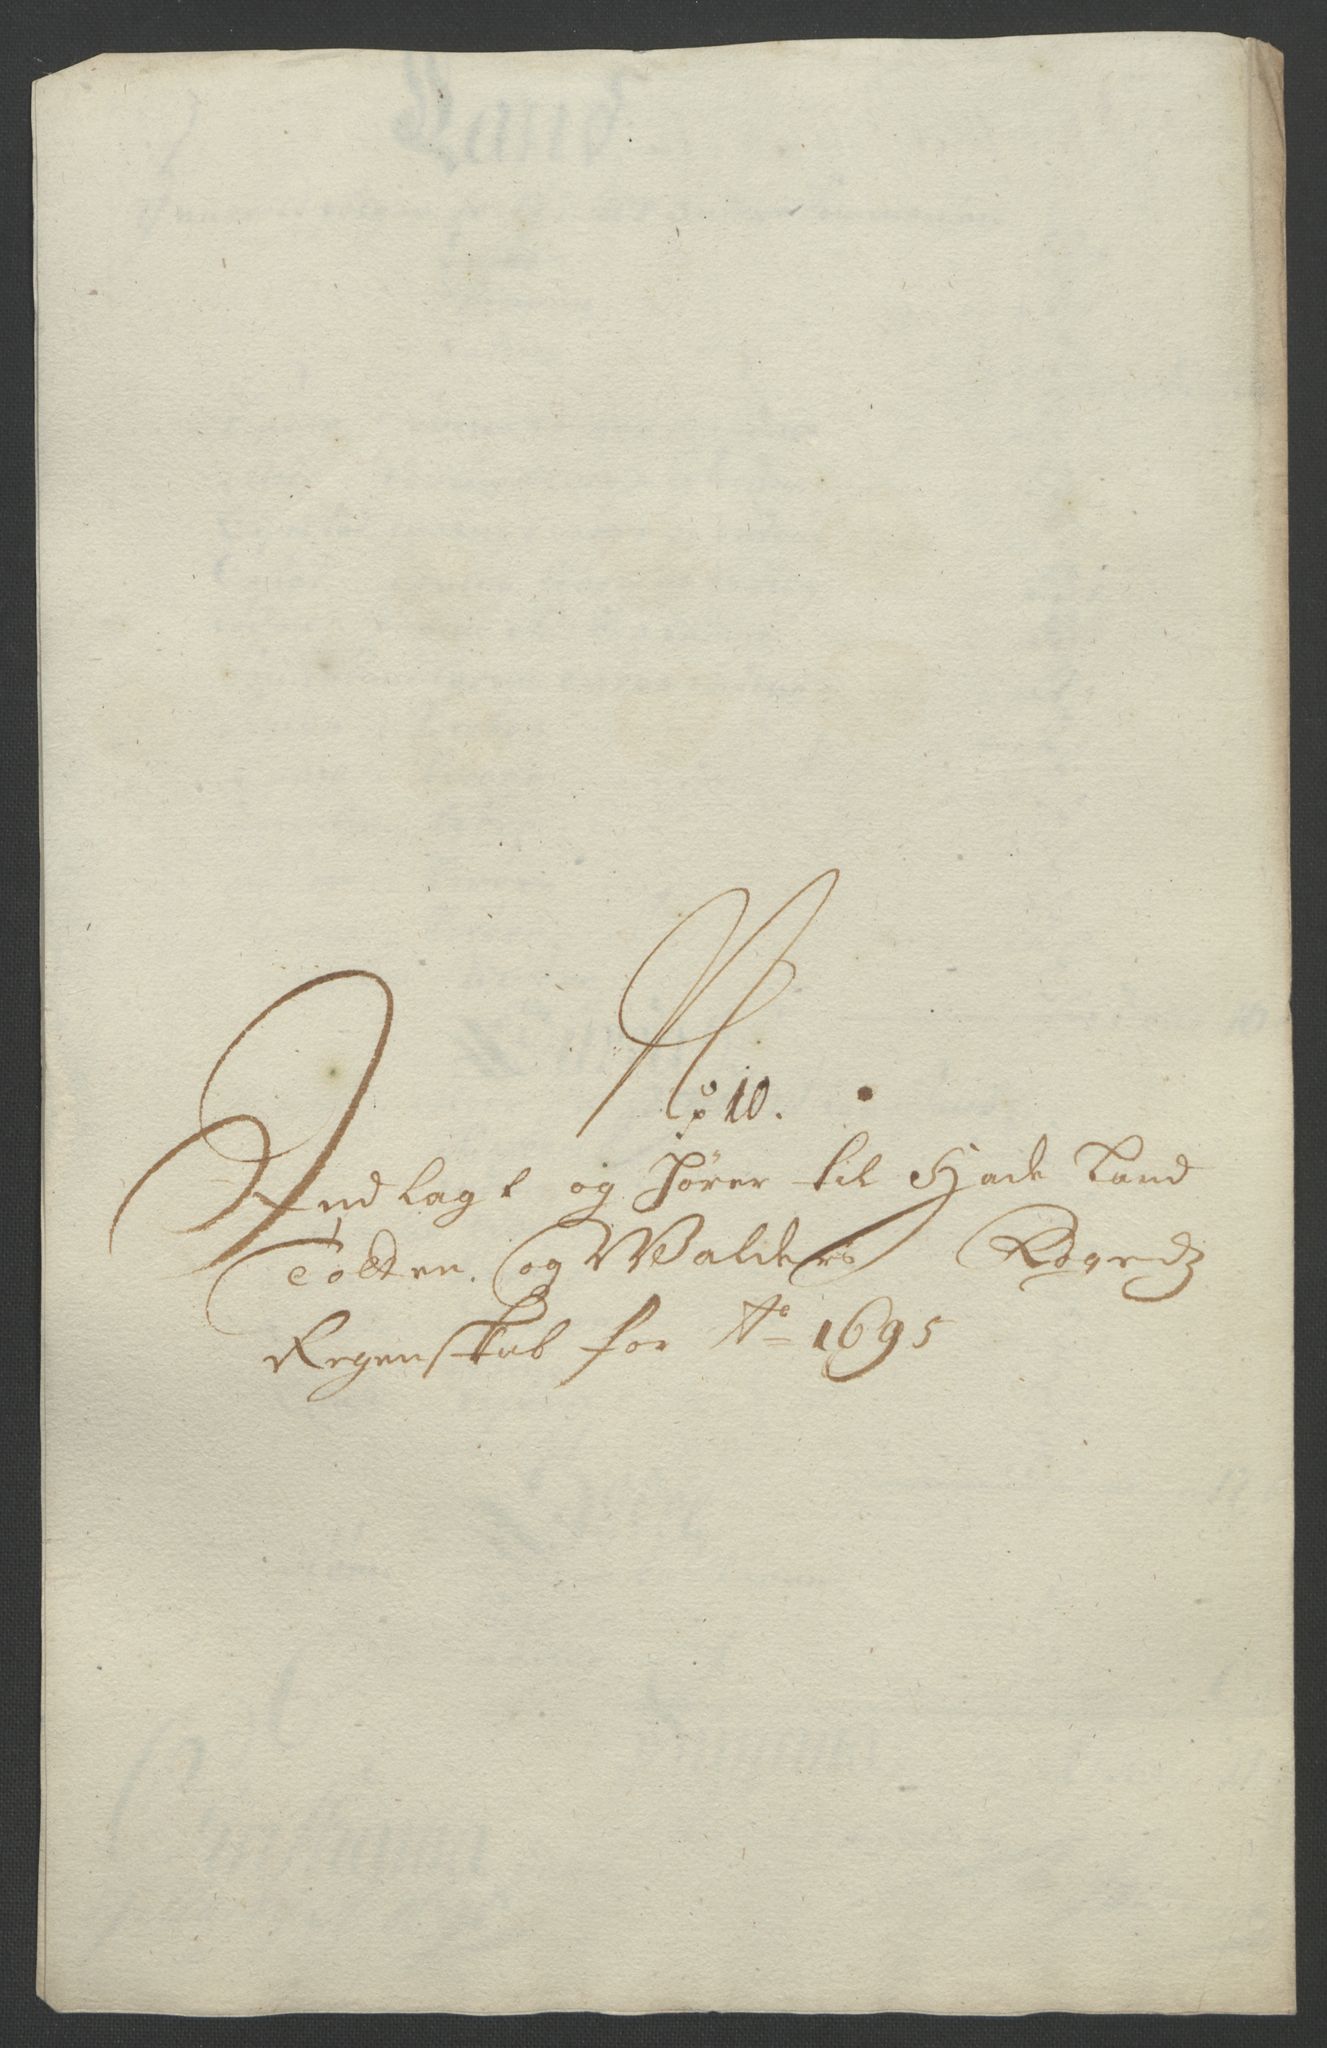 No 10.
Indlagt og hører til Hade Land
Totten. og Walders Fogedz
Regenskab for Ao 1695